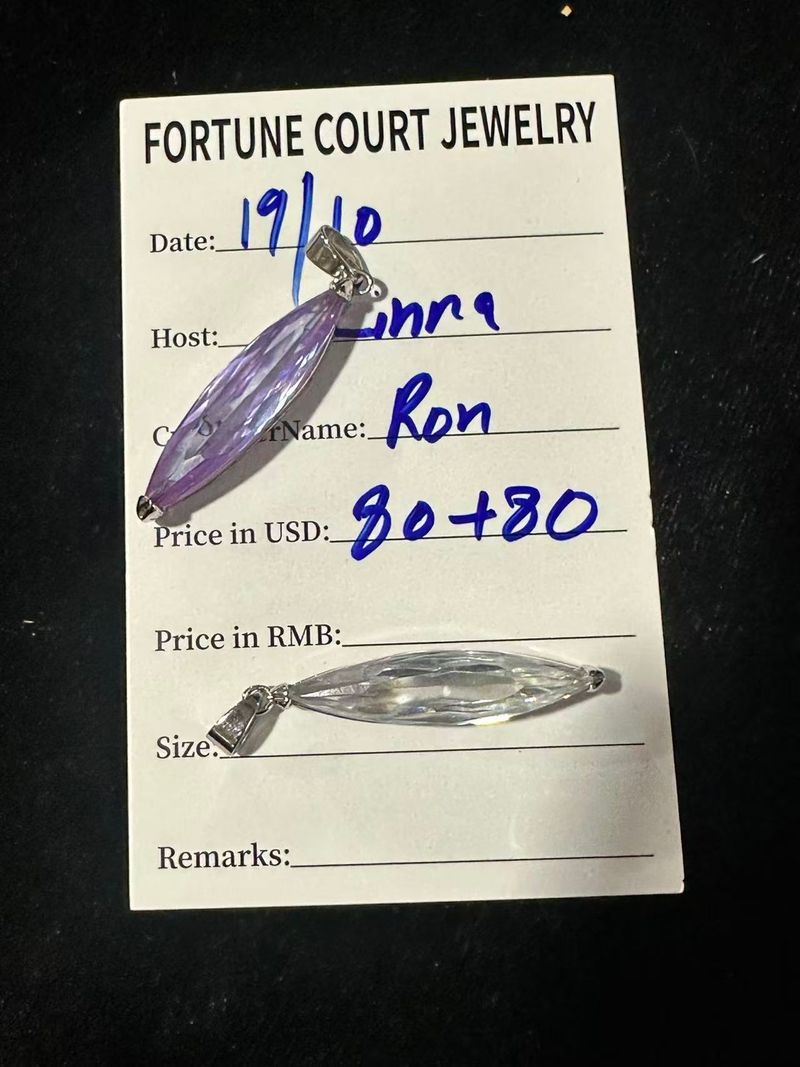 FORTUNE COURT JEWELRY
Date: 19/10
Host:
Name: Ron
Price in USD: 80+80
Price in RMB:
Size:
Remarks: